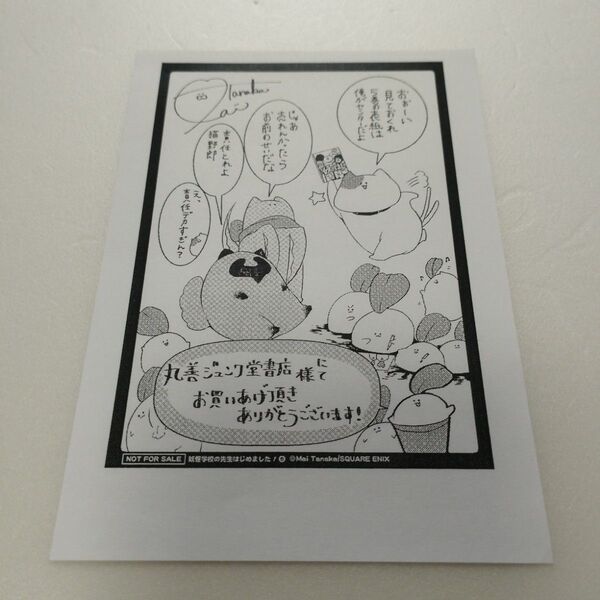 Tanaka
Mai
おぉーい
見ておくれ
5巻の表紙は
俺がセンターだよ
じゃあ
売れんかったら
お前のせいだな
責任とれよ
猫野郎
え、
責任デカすぎん？
丸善ジュンク堂書店様にて
お買いあげ頂き
ありがとうございます！
NOT FOR SALE 妖怪学校の先生はじめました！ ©Mai Tanaka/SQUARE ENIX